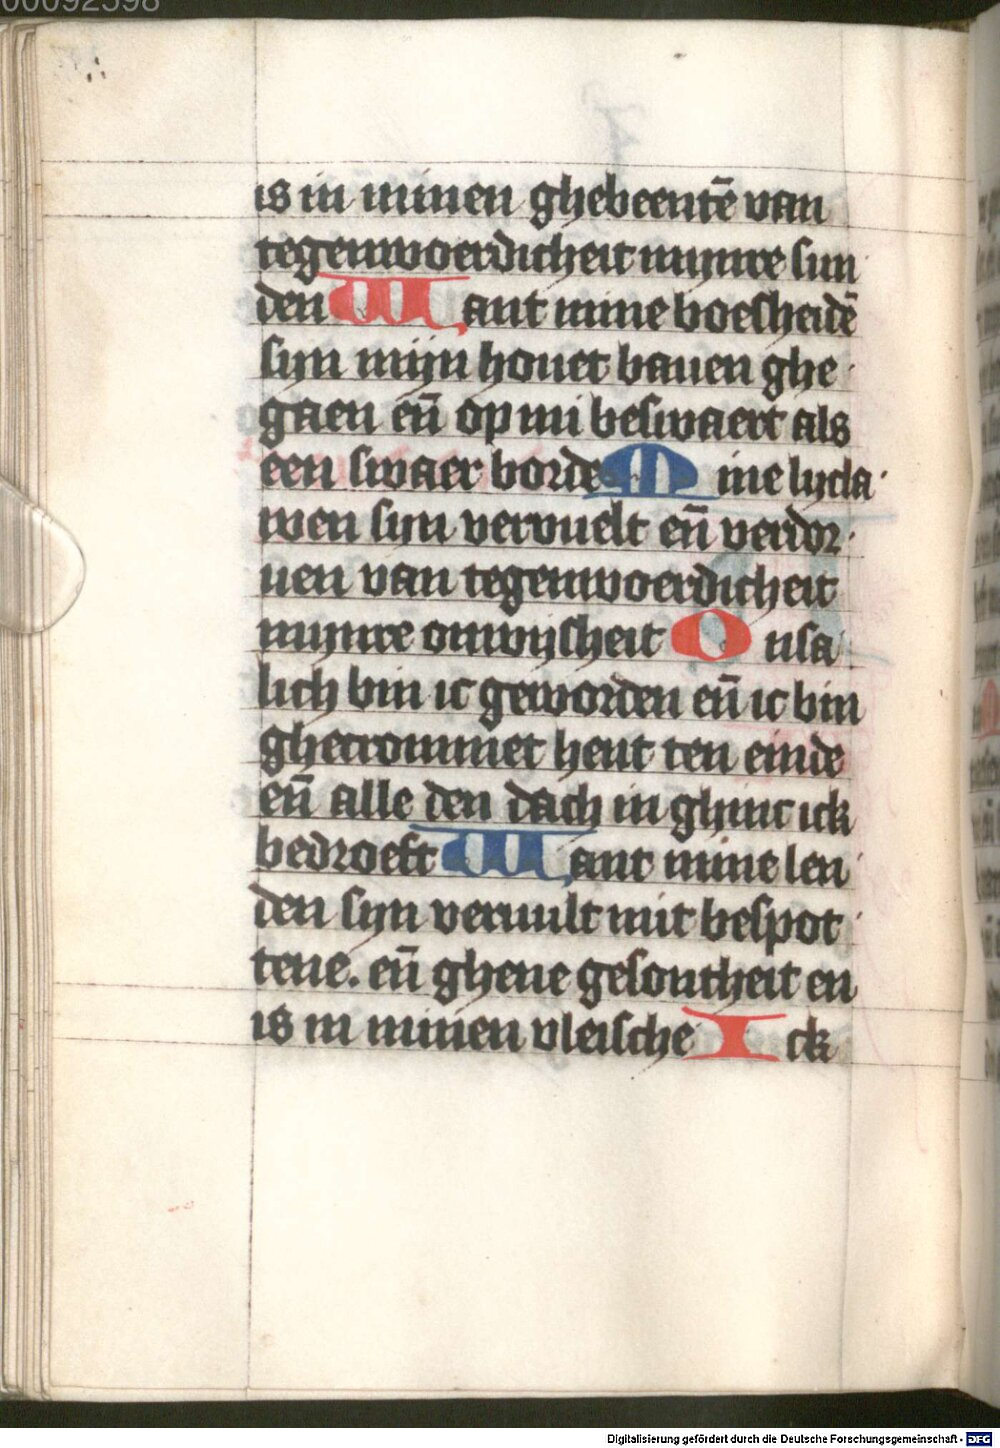 00092598
is in minen ghebeentē van
tegenwoerdicheit mynre sun
den Want mine boesheidē
syn mijn houet bauen ghe
gaen eñ op mi beswaert als
een swaer borde Mine lycla
wen syn vervuelt eñ verdor
uen van tegenwoerdicheit
mynre onwijsheit Onsa
lich bin ic geworden eñ ic bin
ghecrommet hent ten einde
eñ alle den dach in ghinc ick
bedroeft Want mine len
den syn veruult mit bespot
tene. eñ ghene gesontheit en
is in minen vleische Ick
Digitalisierung gefördert durch die Deutsche Forschungsgemeinschaft - DFG